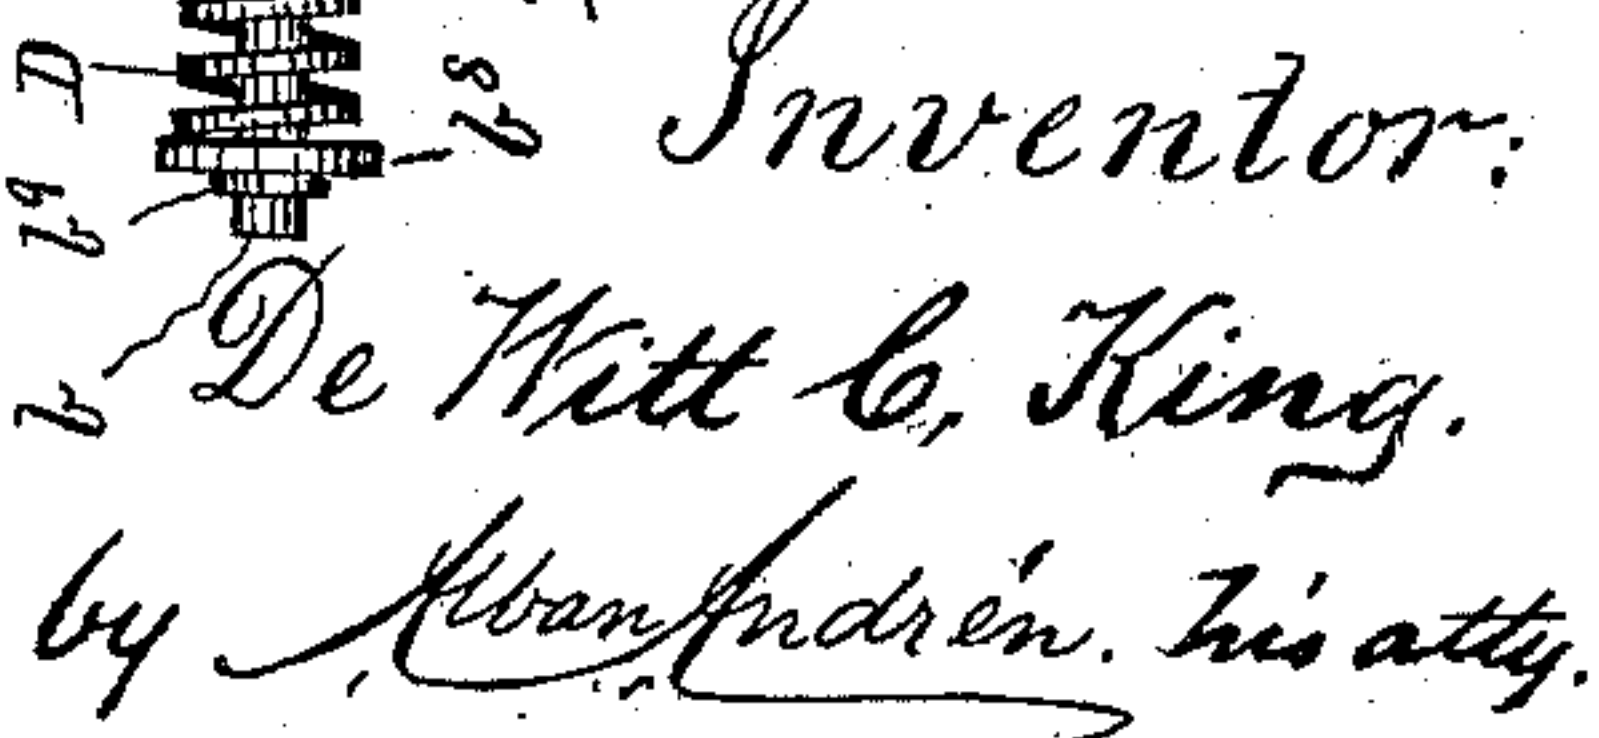 D
b⁸
b⁹
b
Inventor:
De Witt C. King.
by Alban Andrén. his atty.